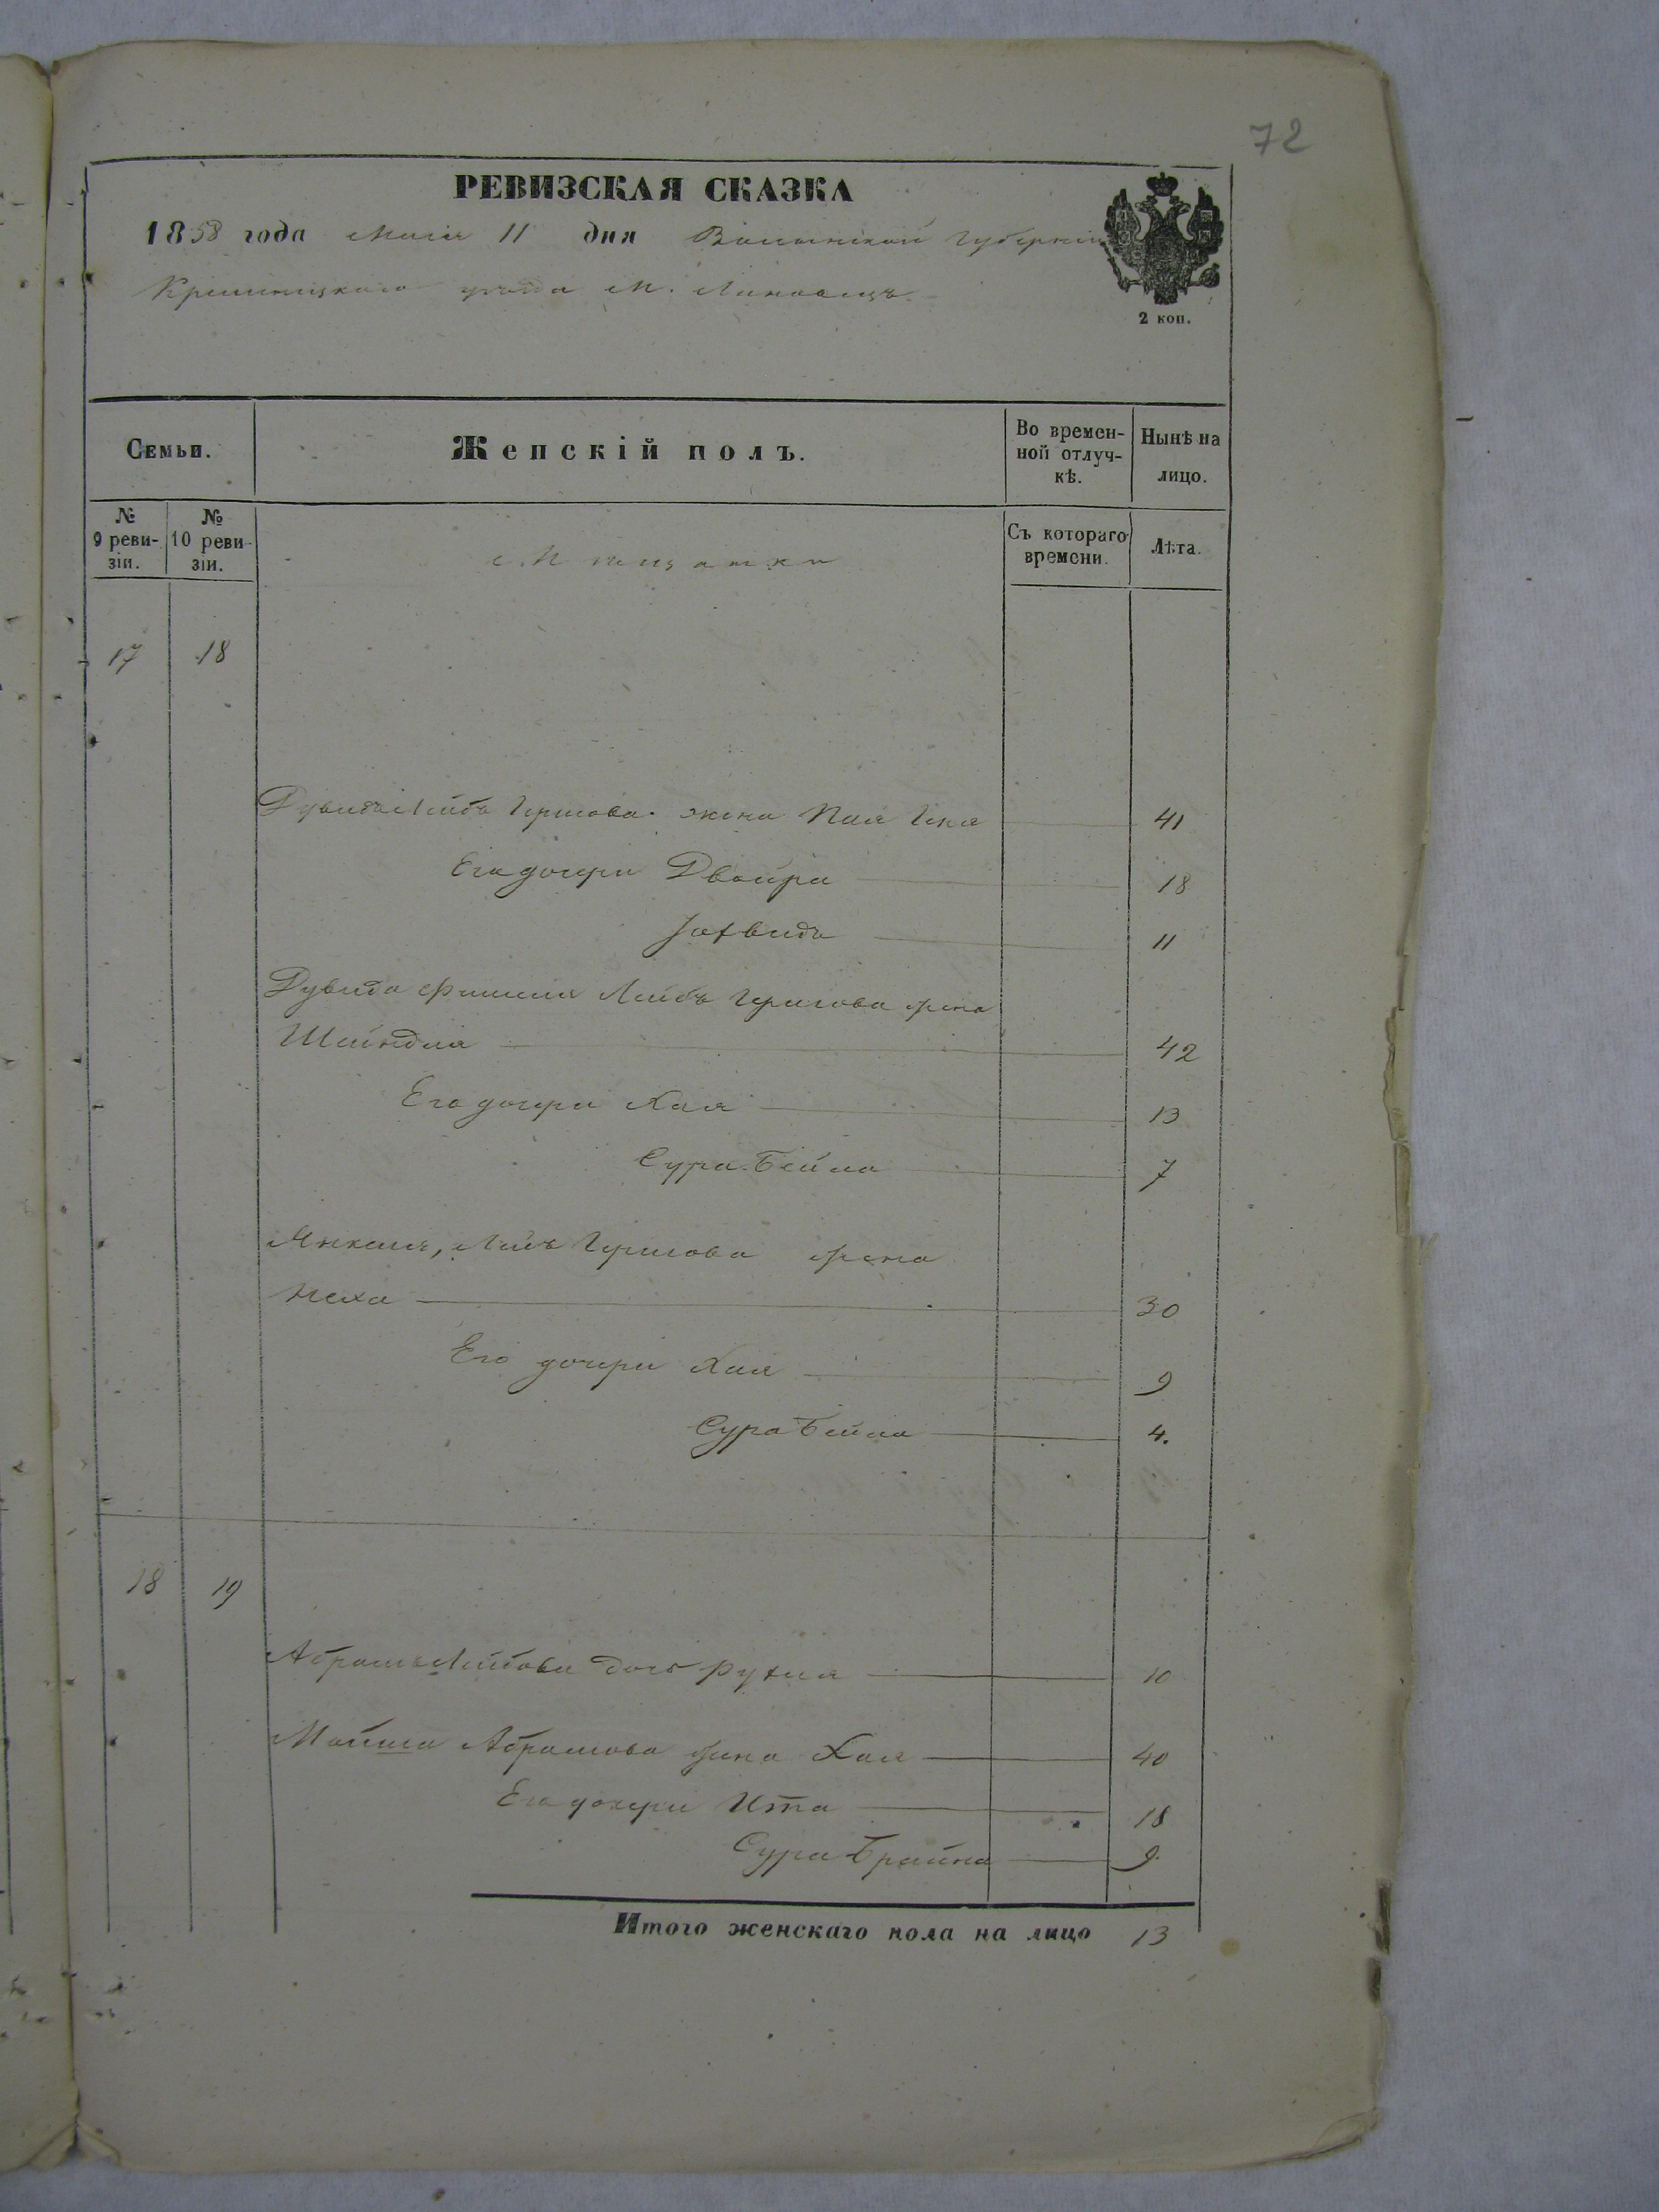 72
РЕВИЗСКАЯ СКАЗКА
1858 года Маія 11 дня Волынской Губерніи
Кременецкаго уѣзда М. Лановецъ.
2 коп.
Семьи.
Женскій полъ.
Во времен-
ной отлуч-
кѣ.
Нынѣ на
лицо.
№
9 реви-
зіи.
№
10 реви-
зіи.
Мѣщанки
Съ котораго
времени.
Лѣта.
17 18
Дувидъ Лейбъ Гершова жена 41
Его дочери Двойра 18
11
Дувида Фишеля Лейбъ Гершова жена
Шейндля 42
Его дочери Хая 13
Сура-Бейла 7
Янкеля, Лейбъ Гершова жена
Неха 30
Его дочери Хая 9
Сура Бейла 4.
18 19
Абрамъ Лейбова дочь Рухля 10
Мойша Абрамова жена Хая 40
Его дочери Ита 18
Сура Брайна 9.
Итого женскаго пола на лицо 13